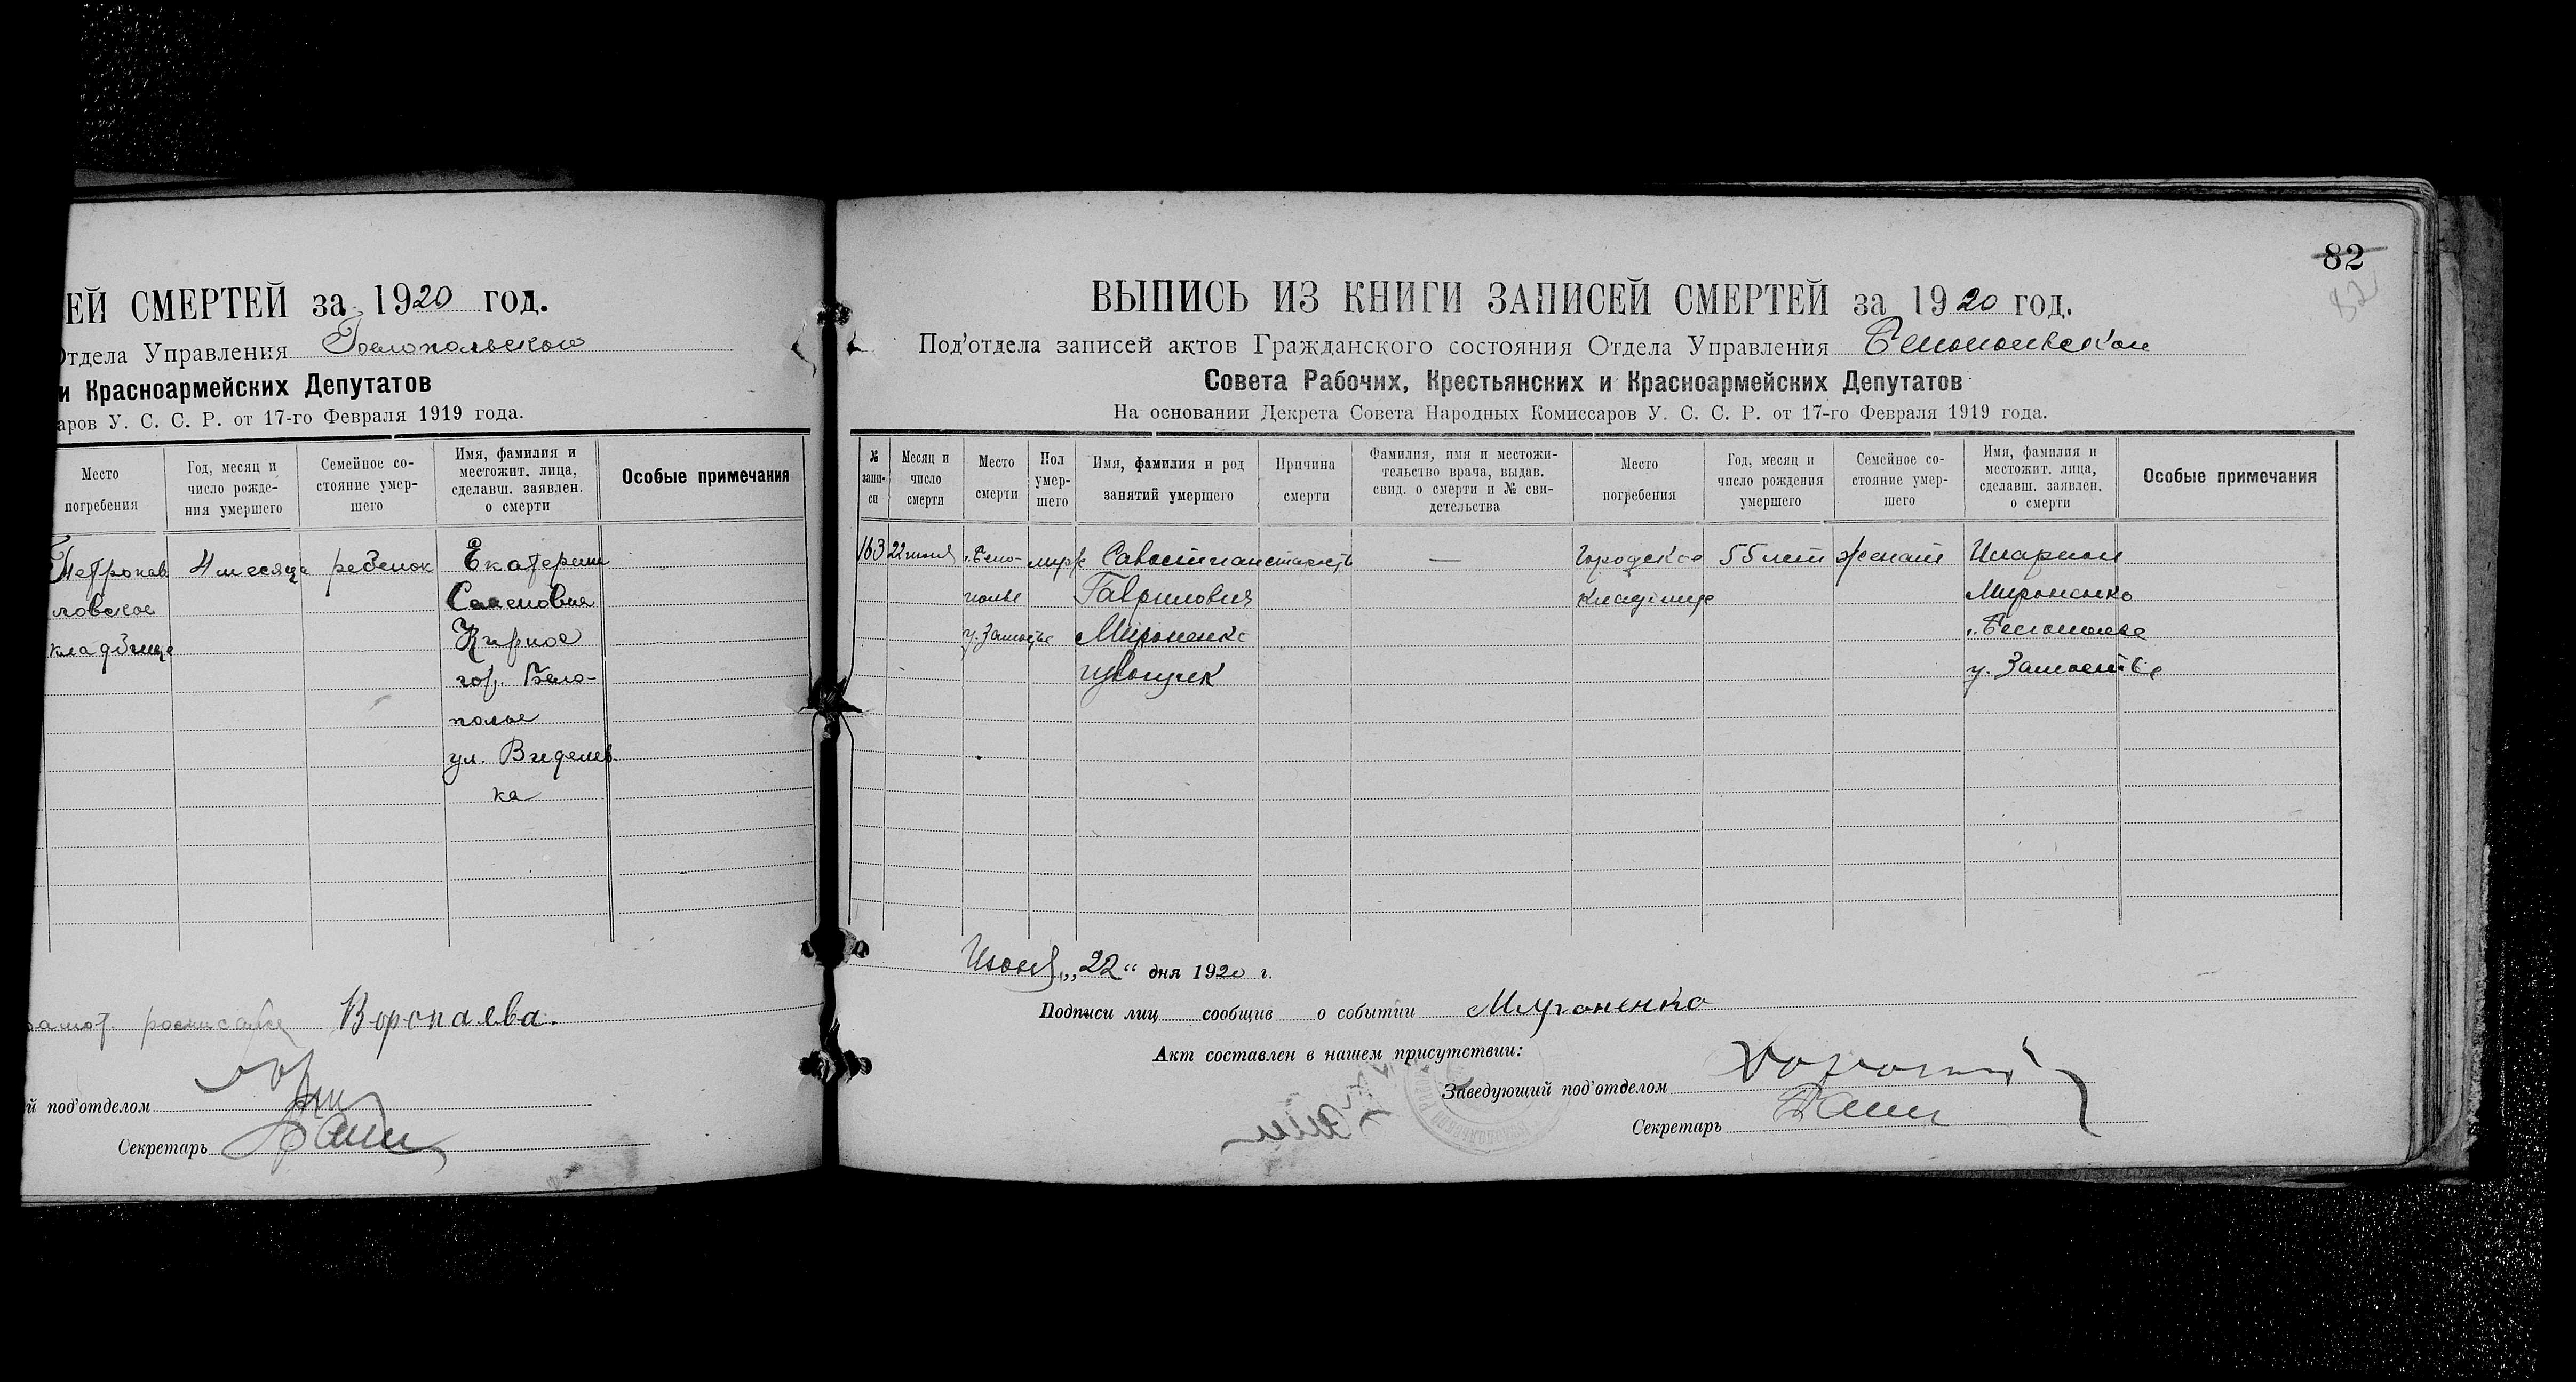 ЕЙ СМЕРТЕЙ за 1920 год.
Отдела Управления Белопольского
и Красноармейских Депутатов
аров У. С. С. Р. от 17-го Февраля 1919 года.
Место погребения
Год, месяц и число рожде- ния умершего
Семейное со- стояние умер- шего
Имя, фамилия и местожит. лица, сделавш. заявлен. о смерти
Особые примечания
Петропав 4 месяца ребенок Екатерина
ловское
кладбище Кирное
гор. Бело-
полье
ул. Виделев
ка
Воропаева.
й под'отделом
Секретарь
82
82
ВЫПИСЬ ИЗ КНИГИ ЗАПИСЕЙ СМЕРТЕЙ за 1920 год.
Под'отдела записей актов Гражданского состояния Отдела Управления Белопольской
Совета Рабочих, Крестьянских и Красноармейских Депутатов
На основании Декрета Совета Народных Комиссаров У. С. С. Р. от 17-го Февраля 1919 года.
№ запи- си
Месяц и число смерти
Место смерти
Пол умер- шего
Имя, фамилия и род занятий умершего
Причина смерти
Фамилия, имя и местожи- тельство врача, выдав. свид. о смерти и № сви- детельства
Место погребения
Год, месяц и число рождения умершего
Семейное со- стояние умер- шего
Имя, фамилия и местожит. лица, сделавш. заявлен. о смерти
Особые примечания
163 22 июня г. Бело- муж Савостиан старость — Городское 55 лет женат Иларион
полье Гаврилович кладбище Мироненко
у. Замостье Мироненко г. Белополье
у. Замостье
Июня „22“ дня 1920 г.
Подписи лиц сообщив о событии Мироненко
Акт составлен в нашем присутствии:
Заведующий под'отделом
Секретарь